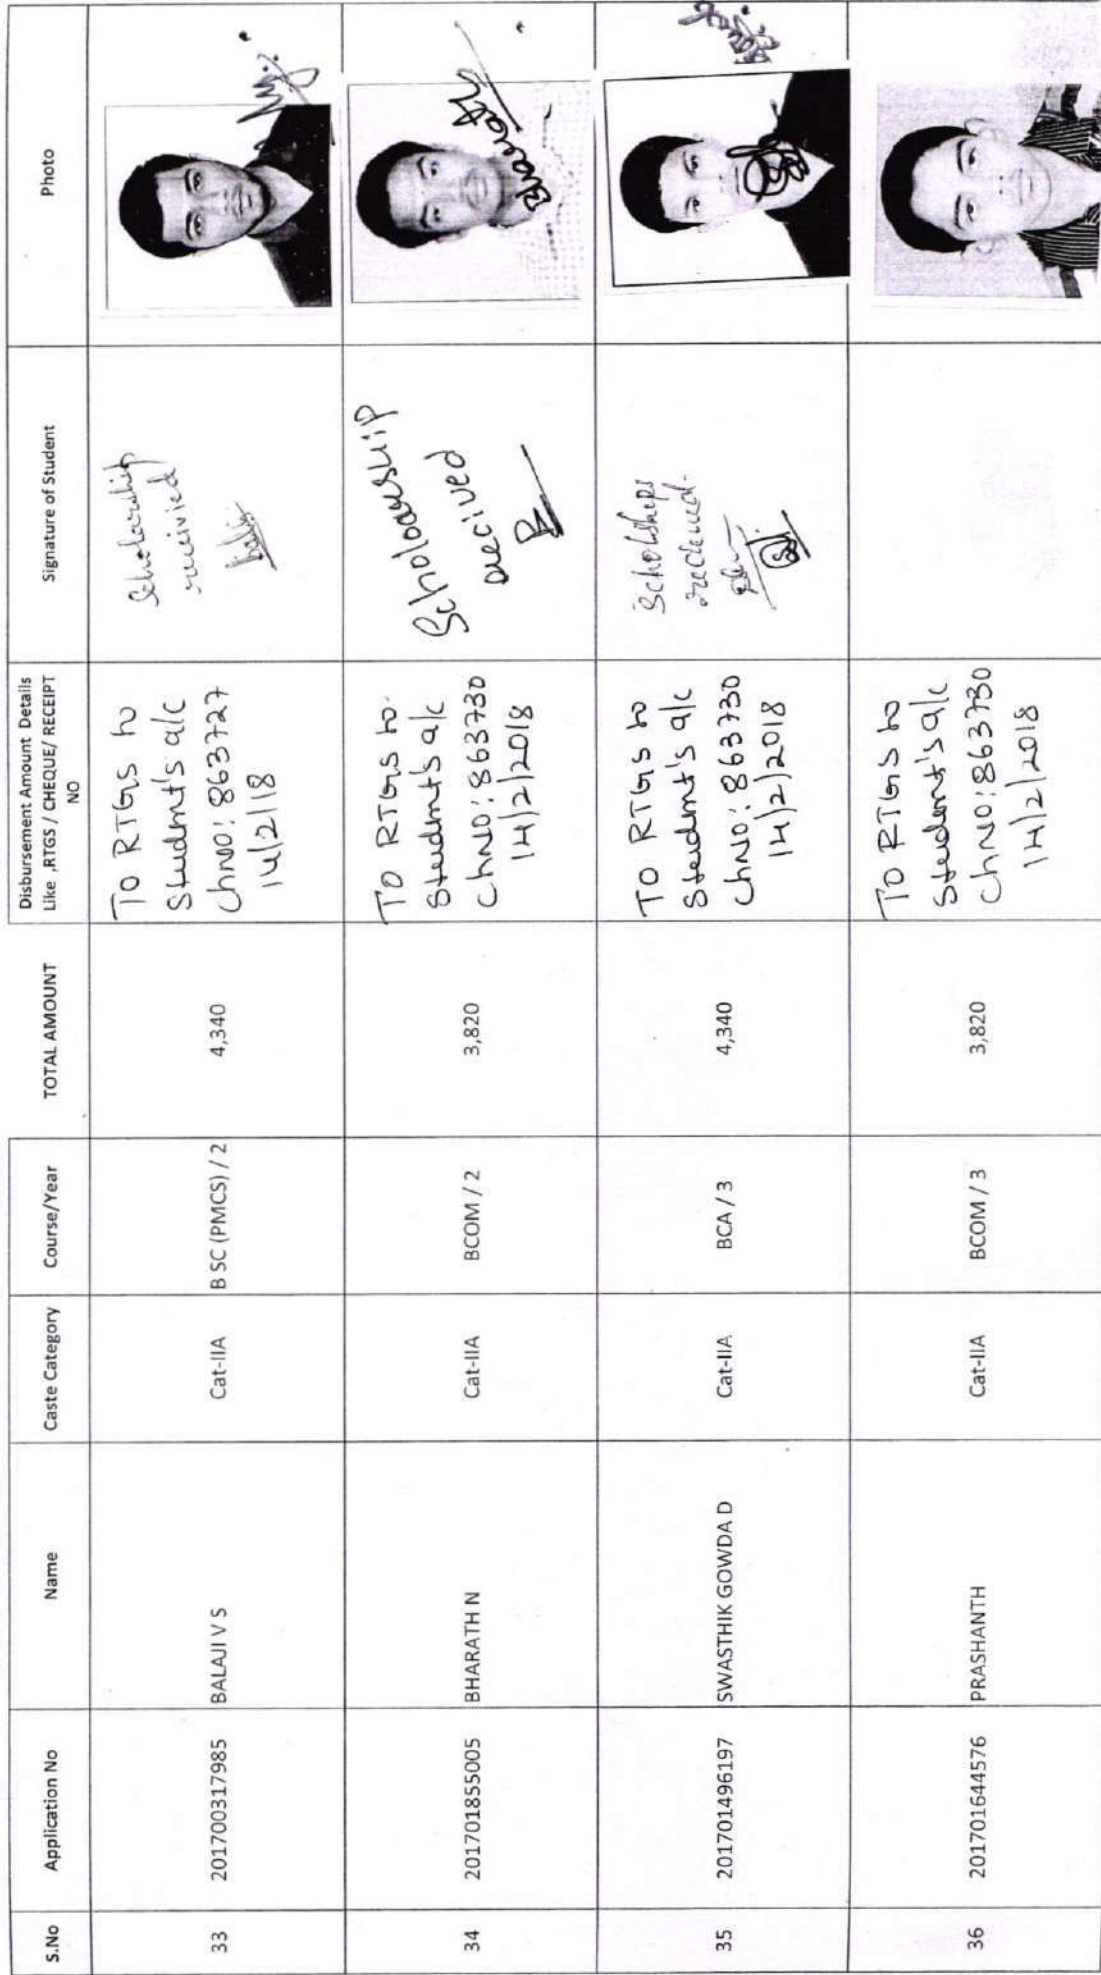 S.No Application No Name Caste Category Course/Year TOTAL AMOUNT Disbursement Amount Details Like ,RTGS / CHEQUE/ RECEIPT NO Signature of Student Photo
33 201700317985 BALAJI V S Cat-IIA B SC (PMCS) / 2 4,340
TO RTGS to
Student's a/c
ChNO: 863727
14/2/18
Scholarship
reeivied
34 201701855005 BHARATH N Cat-IIA BCOM / 2 3,820
TO RTGS to
Student's a/c
ChNO: 863730
14/2/2018
Scholarship
recived
Bharath
35 201701496197 SWASTHIK GOWDA D Cat-IIA BCA / 3 4,340
TO RTGS to
Student's a/c
ChNO: 863730
14/2/2018
36 201701644576 PRASHANTH Cat-IIA BCOM / 3 3,820
TO RTGS to
Student's a/c
ChNO: 863730
14/2/2018